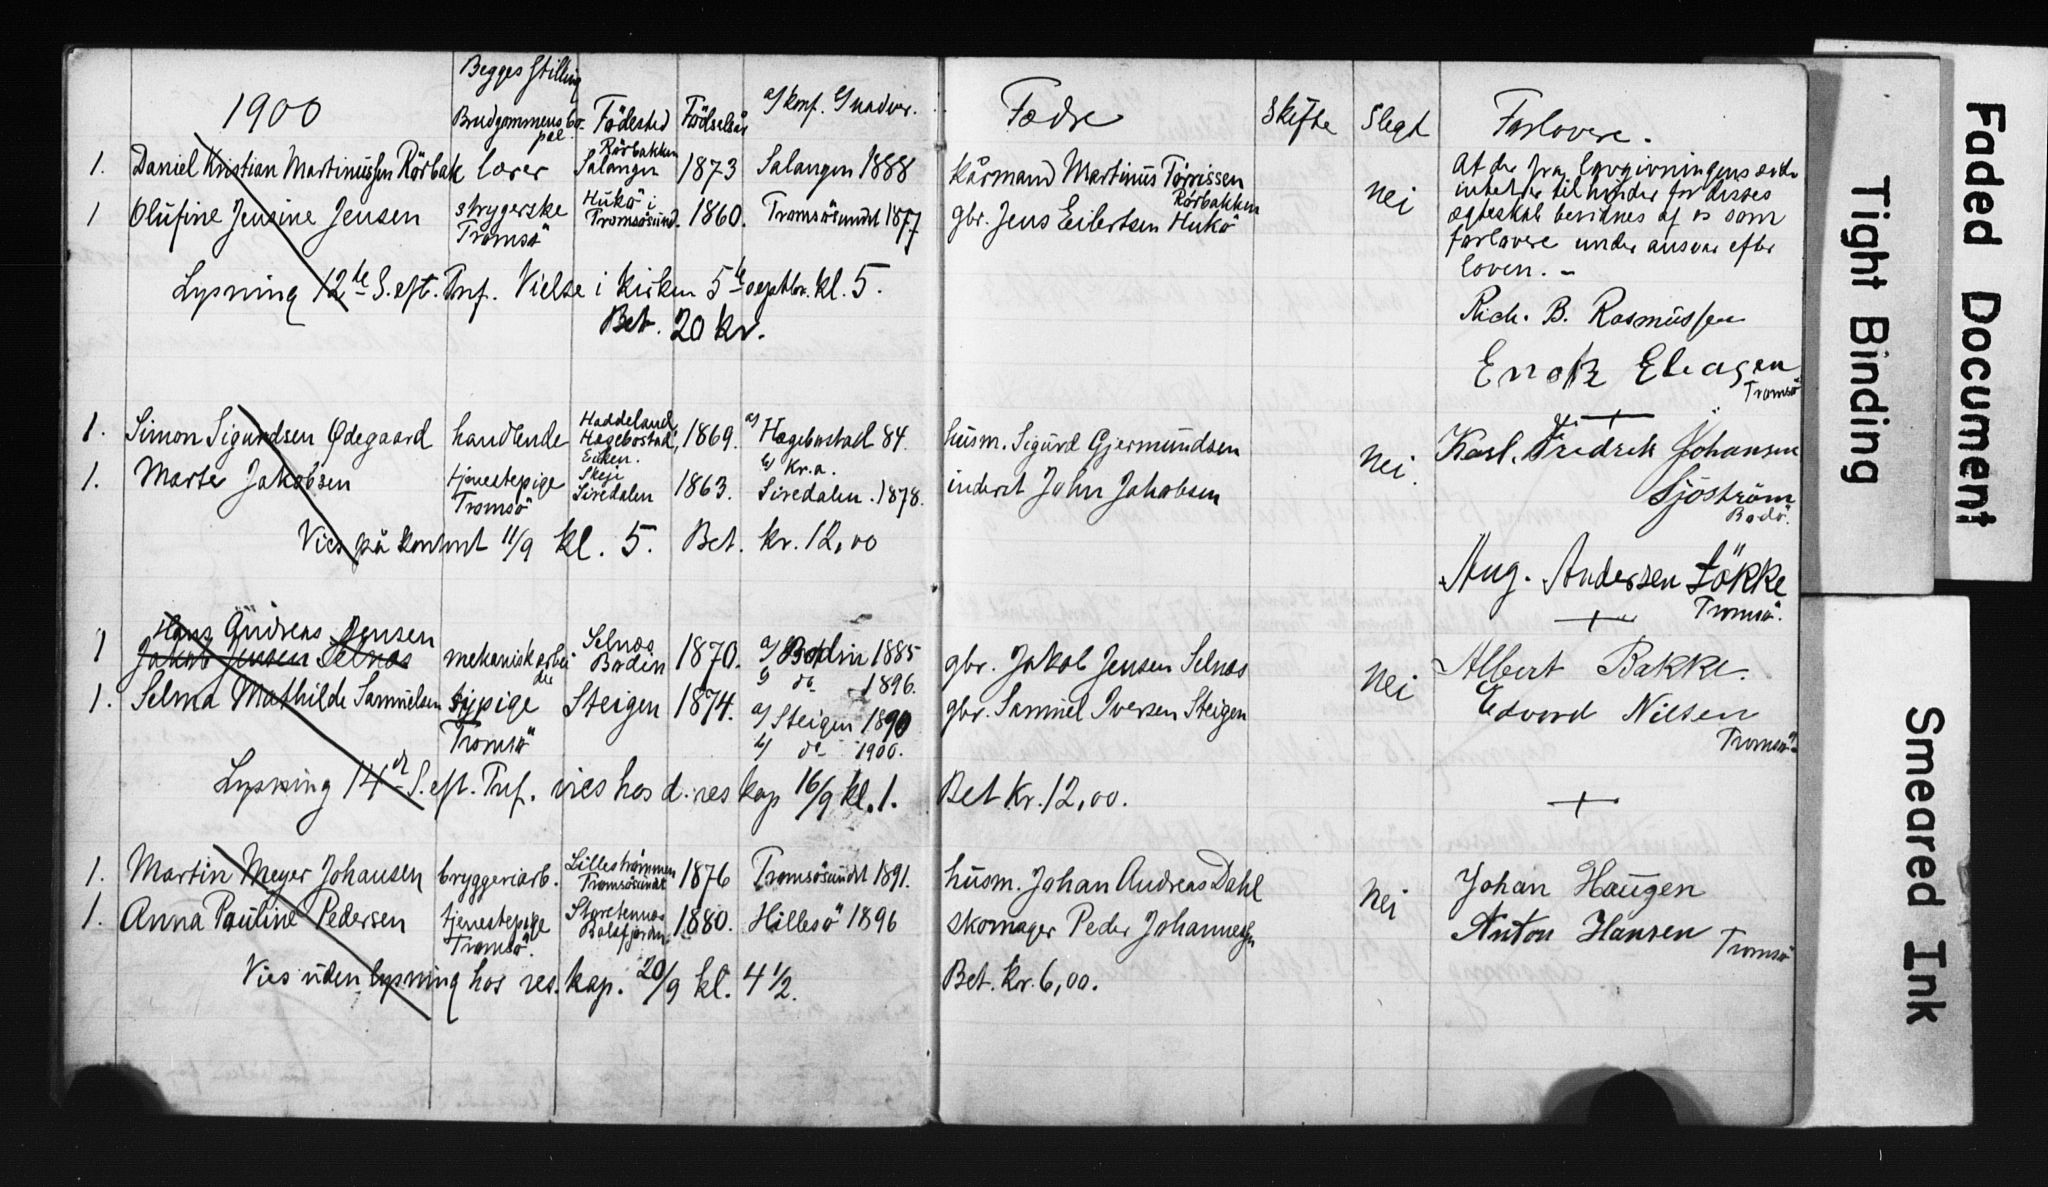 1900
Begges Stilling
Brudgommens bo-
pæl.
Födested
Födselsår
a/ konf. b/ nadver.
Fædre
Skifte
Slegt
Forlovere.
1. Daniel Kristian Martinussen Rörbak lærer Rörbakken Salangen 1873 Salangen 1888 kårmand Martinus Törrissen Rörbakken
1 Olufine Jensine Jensen strygerske Tromsö Hukö i Tromsösund. 1860. Tromsösundet 1877 gbr. Jens Eilertsen Hukö nei
At der fra lovgivningens side
intet er til hinder for disses
ægteskab bevidnes af os som
forlovere under ansvar efter
loven. –
Lysning 12te S. eft. Tref. Vielse i kirken 5te septbr. kl. 5.
Bet. 20 kr.
Rich. B. Rasmussen
Enok Eliasen
Tromsö
1. Simon Sigurdsen Ødegaard handlende Haddeland, Hægebostad, Eiken. 1869. a/ Hægebostad 84. b/ kr.a. husm. Sigurd Gjermundsen
1. Marte Jakobsen tjenestepige Tromsö Skeje Siredalen 1863. Siredalen. 1878. inderst John Jakobsen nei.
Karl. Fredrik Johansen
Sjöström
Bodö.
Vies på kontoret 11/9 kl. 5. Bet. kr. 12,00
Aug. Andersen Lökke
Tromsö.
Hans Andreas Jensen
1 Jakob Jensen Selnæs mekanisk arbeider Selnæs Bodin 1870. a/ Bodin 1885 b/ do 1896. gbr. Jakob Jensen Selnæs
1. Selma Mathilde Samuelsen sypige Tromsö Steigen 1874. a/ Steigen 1890 b/ do 1900. gbr. Samuel Iversen Steigen nei
Albert Bakke.
Edvard Nilsen
Tromsö
Lysning 14de S. eft. Tref. vies hos d. res kap 16/9 kl. 1. Bet kr. 12,00.
1. Martin Meyer Johansen bryggeriarb. Lillestrømmen Tromsösundet 1876 Tromsösundet 1891. husm. Johan Andreas Dahl
1. Anna Pauline Pedersen tjenestepige Tromsö. Storstennæs Balsfjorden 1880. Hillesö 1896 skomager Peder Johannessen nei
Johan Haugen
Anton Hansen Tromsö
Vies uden lysning hos res. kap. 20/9 kl. 4 1/2. Bet. kr. 6,00.
Faded Document
Tight Binding
Smeared Ink